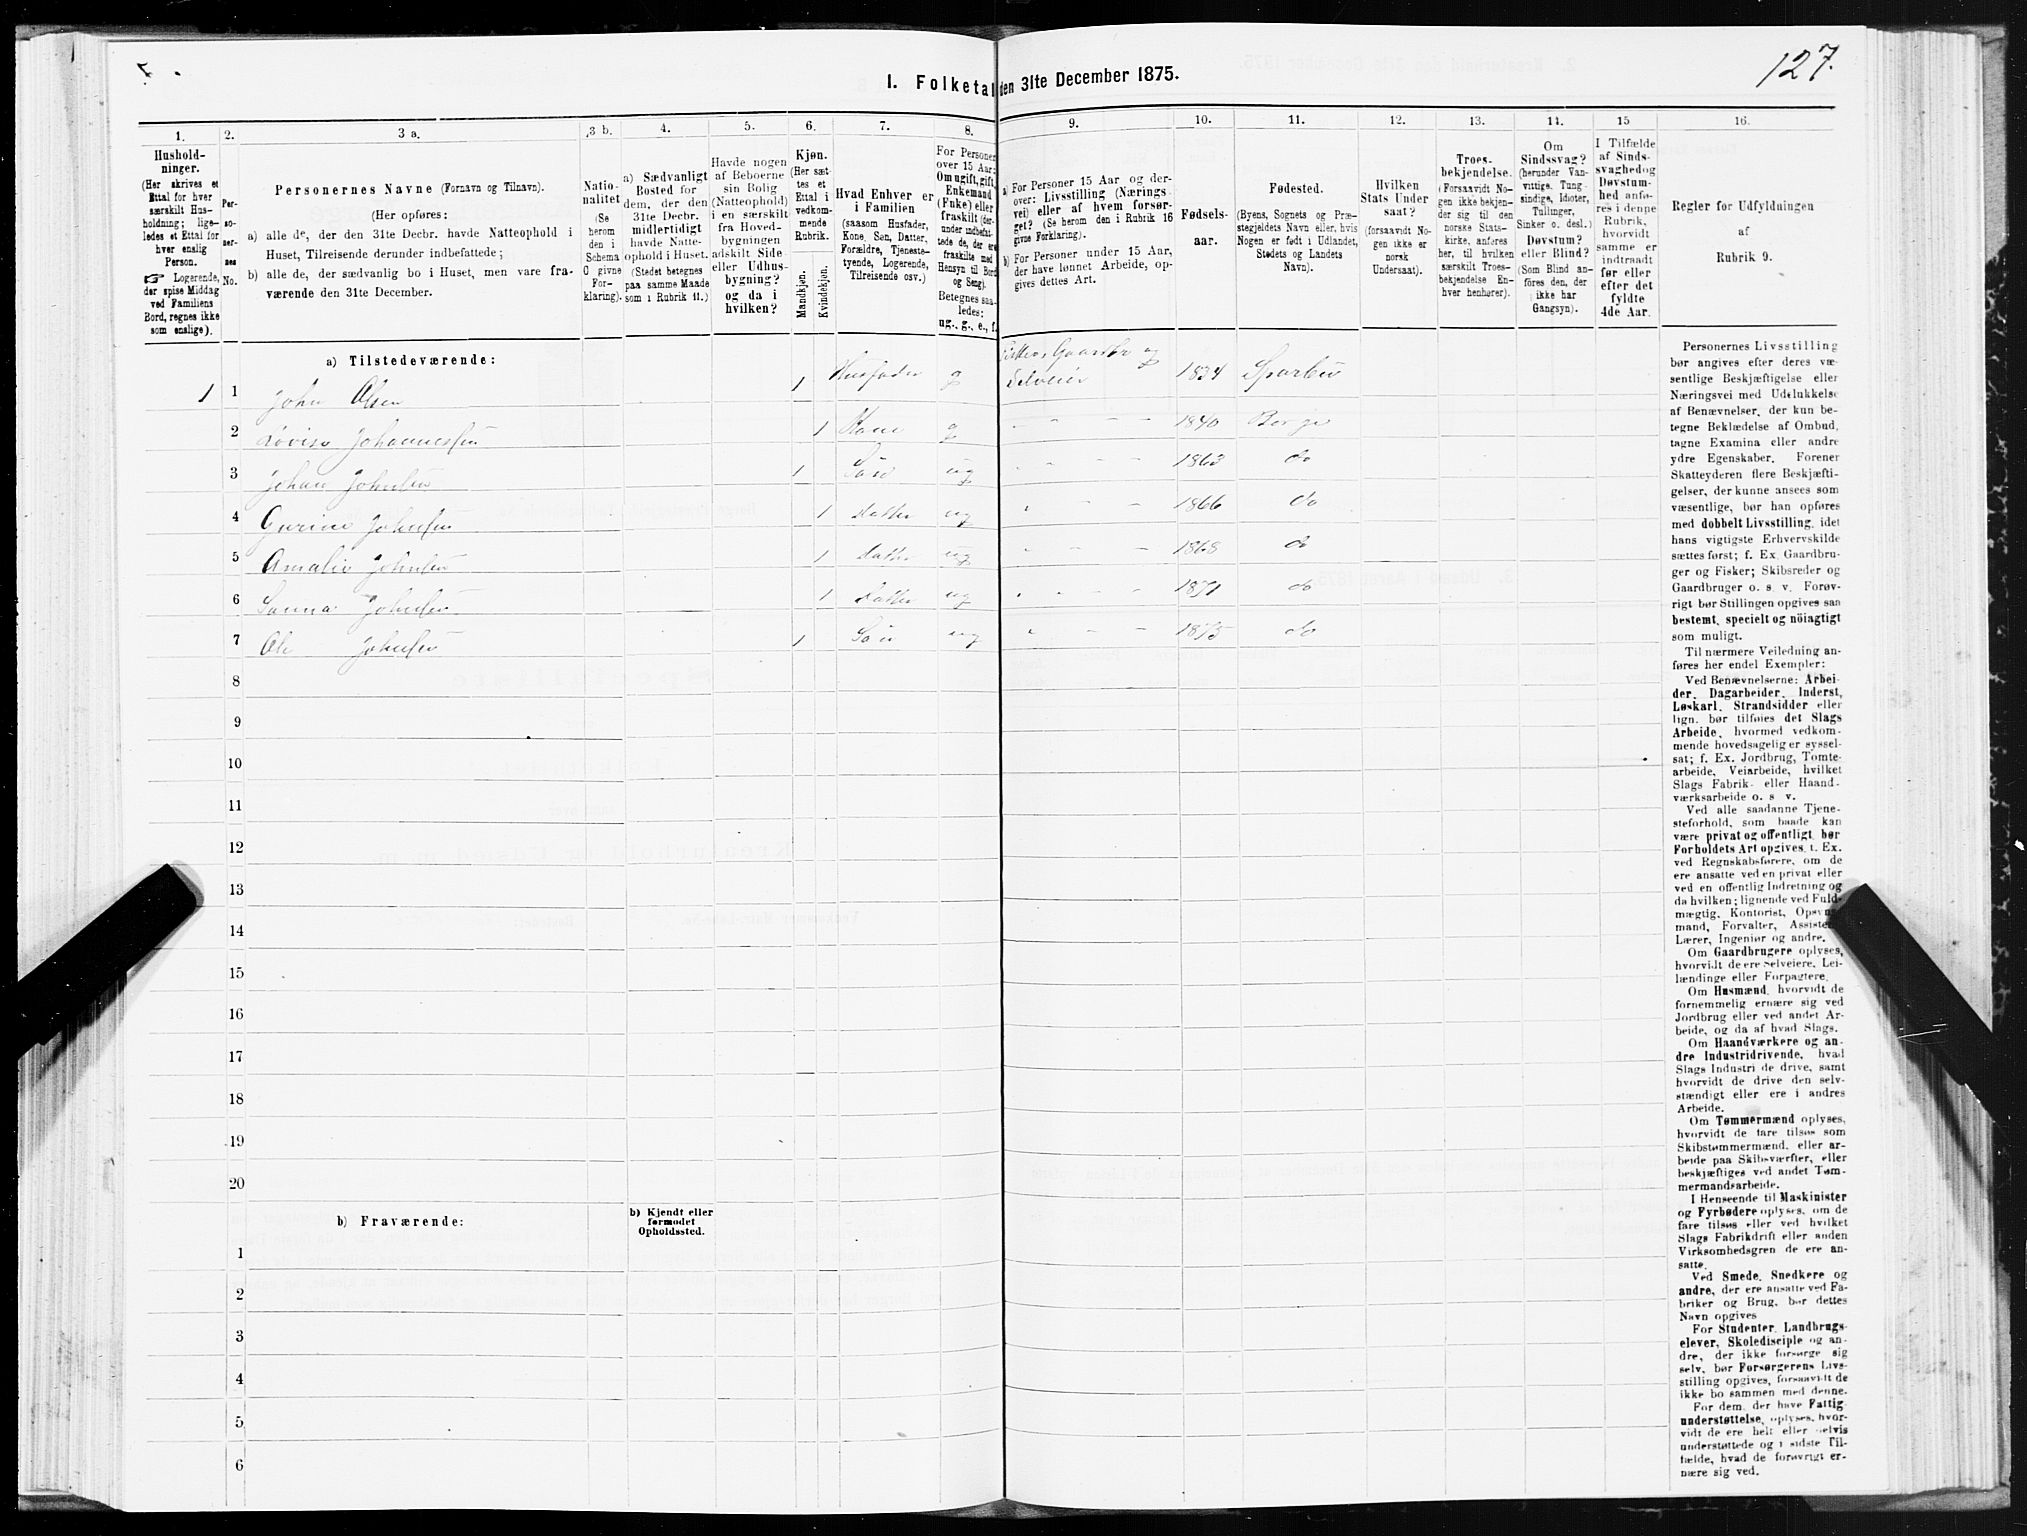 127.
I. Folketal den 31te December 1875.
1. 2. 3 a. 3 b. 4. 5. 6. 7. 8. 9. 10. 11. 12. 13. 14. 15 16.
Hushold-
ninger.
(Her skrives et
Ettal for hver
særskilt Hus-
holdning; lige-
ledes et Ettal for
hver enslig
Person.
☞ Logerende,
der spise Middag
ved Familiens
Bord, regnes ikke
som enslige).
Per-
so-
ner-
nes
No.
Personernes Navne (Fornavn og Tilnavn).
(Her opføres:
a) alle de, der den 31te Decbr. havde Natteophold i
Huset, Tilreisende derunder indbefattede;
b) alle de, der sædvanlig bo i Huset, men vare fra-
værende den 31te December.
Natio-
nalitet
(Se
herom
den i
Schema
O givne
For-
klaring).
a) Sædvanligt
Bosted for
dem, der den
31te Decbr.
midlertidigt
havde Natte-
ophold i Huset.
(Stedet betegnes
paa samme Maade
som i Rubrik 11.)
Havde nogen
af Beboerne
sin Bolig
(Natteophold)
i en særskilt
fra Hoved-
bygningen
adskilt Side-
eller Udhus-
bygning?
og da i
hvilken?
Kjøn.
(Her sæt-
tes et
Ettal i
vedkom-
mende
Rubrik.
Mandkjøn.
Kvindekjøn.
Hvad Enhver er
i Familien
(saasom Husfader,
Kone, Søn, Datter,
Forældre, Tjeneste-
tyende, Logerende,
Tilreisende osv.)
For Personer
over 15 Aar:
Om ugift, gift,
Enkemand
(Enke) eller
fraskilt (der-
under indbefat-
tede de, der ere
fraskilte med
Hensyn til Bord
og Seng).
Betegnes saa-
ledes:
ug., g., e., f.
a) For Personer 15 Aar og der-
over: Livsstilling (Nærings-
vei) eller af hvem forsør-
get? (Se herom den i Rubrik 16
givne Forklaring).
b) For Personer under 15 Aar,
der have lønnet Arbeide, op-
gives dettes Art.
Fødsels-
aar.
Fødested.
(Byens, Sognets og Præ-
stegjeldets Navn eller, hvis
Nogen er født i Udlandet,
Stedets og Landets
Navn).
Hvilken
Stats Under
saat?
(forsaavidt No-
gen ikke er
norsk
Undersaat).
Troes-
bekjendelse.
(Forsaavidt No-
gen ikke bekjen-
der sig til den
norske Stats-
kirke, anføres
her, til hvilken
særskilt Troes-
bekjendelse En-
hver henhører).
Om
Sindssvag?
(herunder Van-
vittige, Tung-
sindige, Idioter,
Tullinger,
Sinker o. desl.)
Døvstum?
eller Blind?
(Som Blind an-
føres den, der
ikke har
Gangsyn).
I Tilfælde
af Sinds-
svaghed og
Døvstum-
hed anfø-
res i denne
Rubrik,
hvorvidt
samme er
indtraadt
før eller
efter det
fyldte
4de Aar.
Regler for Udfyldningen
af
Rubrik 9.
a) Tilstedeværende:
1 1 John Olsen 1 Husfader g Gaardbr og Selveier 1834 Sparbu
2 Lovise Johannessen 1 Kone g " - - - 1840 Borge
3 Johan Johnsen 1 Søn ug " - - - 1863 do
4 Gurine Johnsen 1 Datter ug " - - 1866 do
5 Amalie Johnsen 1 Datter ug " - - - 1868 do
6 Sanna Johnsen 1 Datter ug " - - - 1871 do
7 Ole Johnsen 1 Søn ug " - - 1875 do
8
9
10
11
12
13
14
15
16
17
18
19
20
b) Fraværende:
b) Kjendt eller
formodet
Opholdssted.
1
2
3
4
5
6
Personernes Livsstilling
bør angives efter deres væ-
sentlige Beskjæftigelse eller
Næringsvei med Udelukkelse
af Benævnelser, der kun be-
tegne Beklædelse af Ombud,
tagne Examina eller andre
ydre Egenskaber. Forener
Skatteyderen flere Beskjæfti-
gelser, der kunne ansees som
væsentlige, bør han opføres
med dobbelt Livsstilling, idet
hans vigtigste Erhvervskilde
sættes først; f. Ex. Gaardbru-
ger og Fisker; Skibsreder og
Gaardbruger o. s. v. Forøv-
rigt bør Stillingen opgives saa
bestemt, specielt og nöiagtigt
som muligt.
Til nærmere Veiledning an-
føres her endel Exempler:
Ved Benævnelserne: Arbei-
der, Dagarbeider, Inderst,
Løskarl, Strandsidder eller
lign. bør tilføies det Slags
Arbeide, hvormed vedkom-
mende hovedsagelig er syssel-
sat; f. Ex. Jordbrug, Tomte-
arbeide, Veiarbeide, hvilket
Slags Fabrik- eller Haand-
værksarbeide o. s v.
Ved alle saadanne Tjene-
steforhold, som baade kan
være privat og offentligt, bør
Forholdets Art opgives, t. Ex.
ved Regnskabsførere, om de
ere ansatte ved en privat eller
ved en offentlig Indretning og
da hvilken; lignende ved Fuld-
mægtig, Kontorist, Opsyns-
mand, Forvalter, Assistent,
Lærer, Ingeniør og andre.
Om Gaardbrugere oplyses,
hvorvidt de ere Selveiere, Lei-
lændinge eller Forpagtere.
Om Husmænd, hvorvidt de
fornemmelig ernære sig ved
Jordbrug eller ved andet Ar-
beide, og da af hvad Slags.
Om Haandværkere og an-
dre Industridrivende, hvad
Slags Industri de drive, samt
hvorvidt de drive den selv-
stændigt eller ere i andres
Arbeide.
Om Tømmermænd oplyses,
hvorvidt de fare tilsøs som
Skibstømmermænd, eller ar-
beide paa Skibsværfter, eller
beskjæftiges ved andet Tøm-
mermandsarbeide.
I Henseende til Maskinister
og Fyrbødere oplyses, om de
fare tilsøs eller ved hvilket
Slags Fabrikdrift eller anden
Virksomhedsgren de ere an-
satte.
Ved Smede, Snedkere og
andre, der ere ansatte ved Fa-
briker og Brug, bør dettes
Navn opgives
For Studenter, Landbrugs-
elever, Skoledisciple og an-
dre, der ikke forsørge sig
selv, bør Forsørgerens Livs-
stilling opgives, forsaavidt de
ikke bo sammen med denne.
For dem, der have Fattig-
understøttelse, oplyses, hvor-
vidt de ere helt eller delvis
understøttede og i sidste Til-
fælde, hvad de forøvrigt er-
nære sig ved.